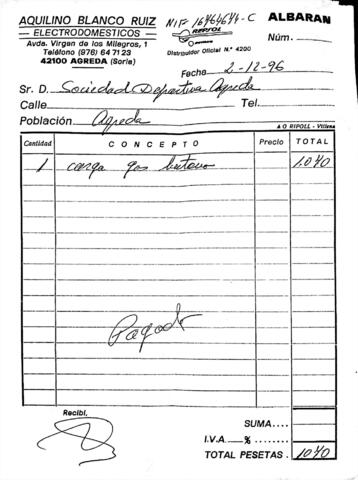 AQUILINO BLANCO RUIZ NIF 16464644-C ALBARAN
ELECTRODOMESTICOS REPSOL BUTANO Núm.
Avda. Virgen de los Milagros, 1
Teléfono (976) 64 71 23 Distribuidor Oficial N.º 4200
42100 AGREDA (Soria)
Fecha 2-12-96
Sr. D. Sociedad Deportiva Agreda
Calle Tel.
Población Agreda
A O RIPOLL - Villena
Cantidad CONCEPTO Precio TOTAL
1 carga gas butano 1.040
Pagado
Recibí,
SUMA
I.V.A. %
TOTAL PESETAS. 1040